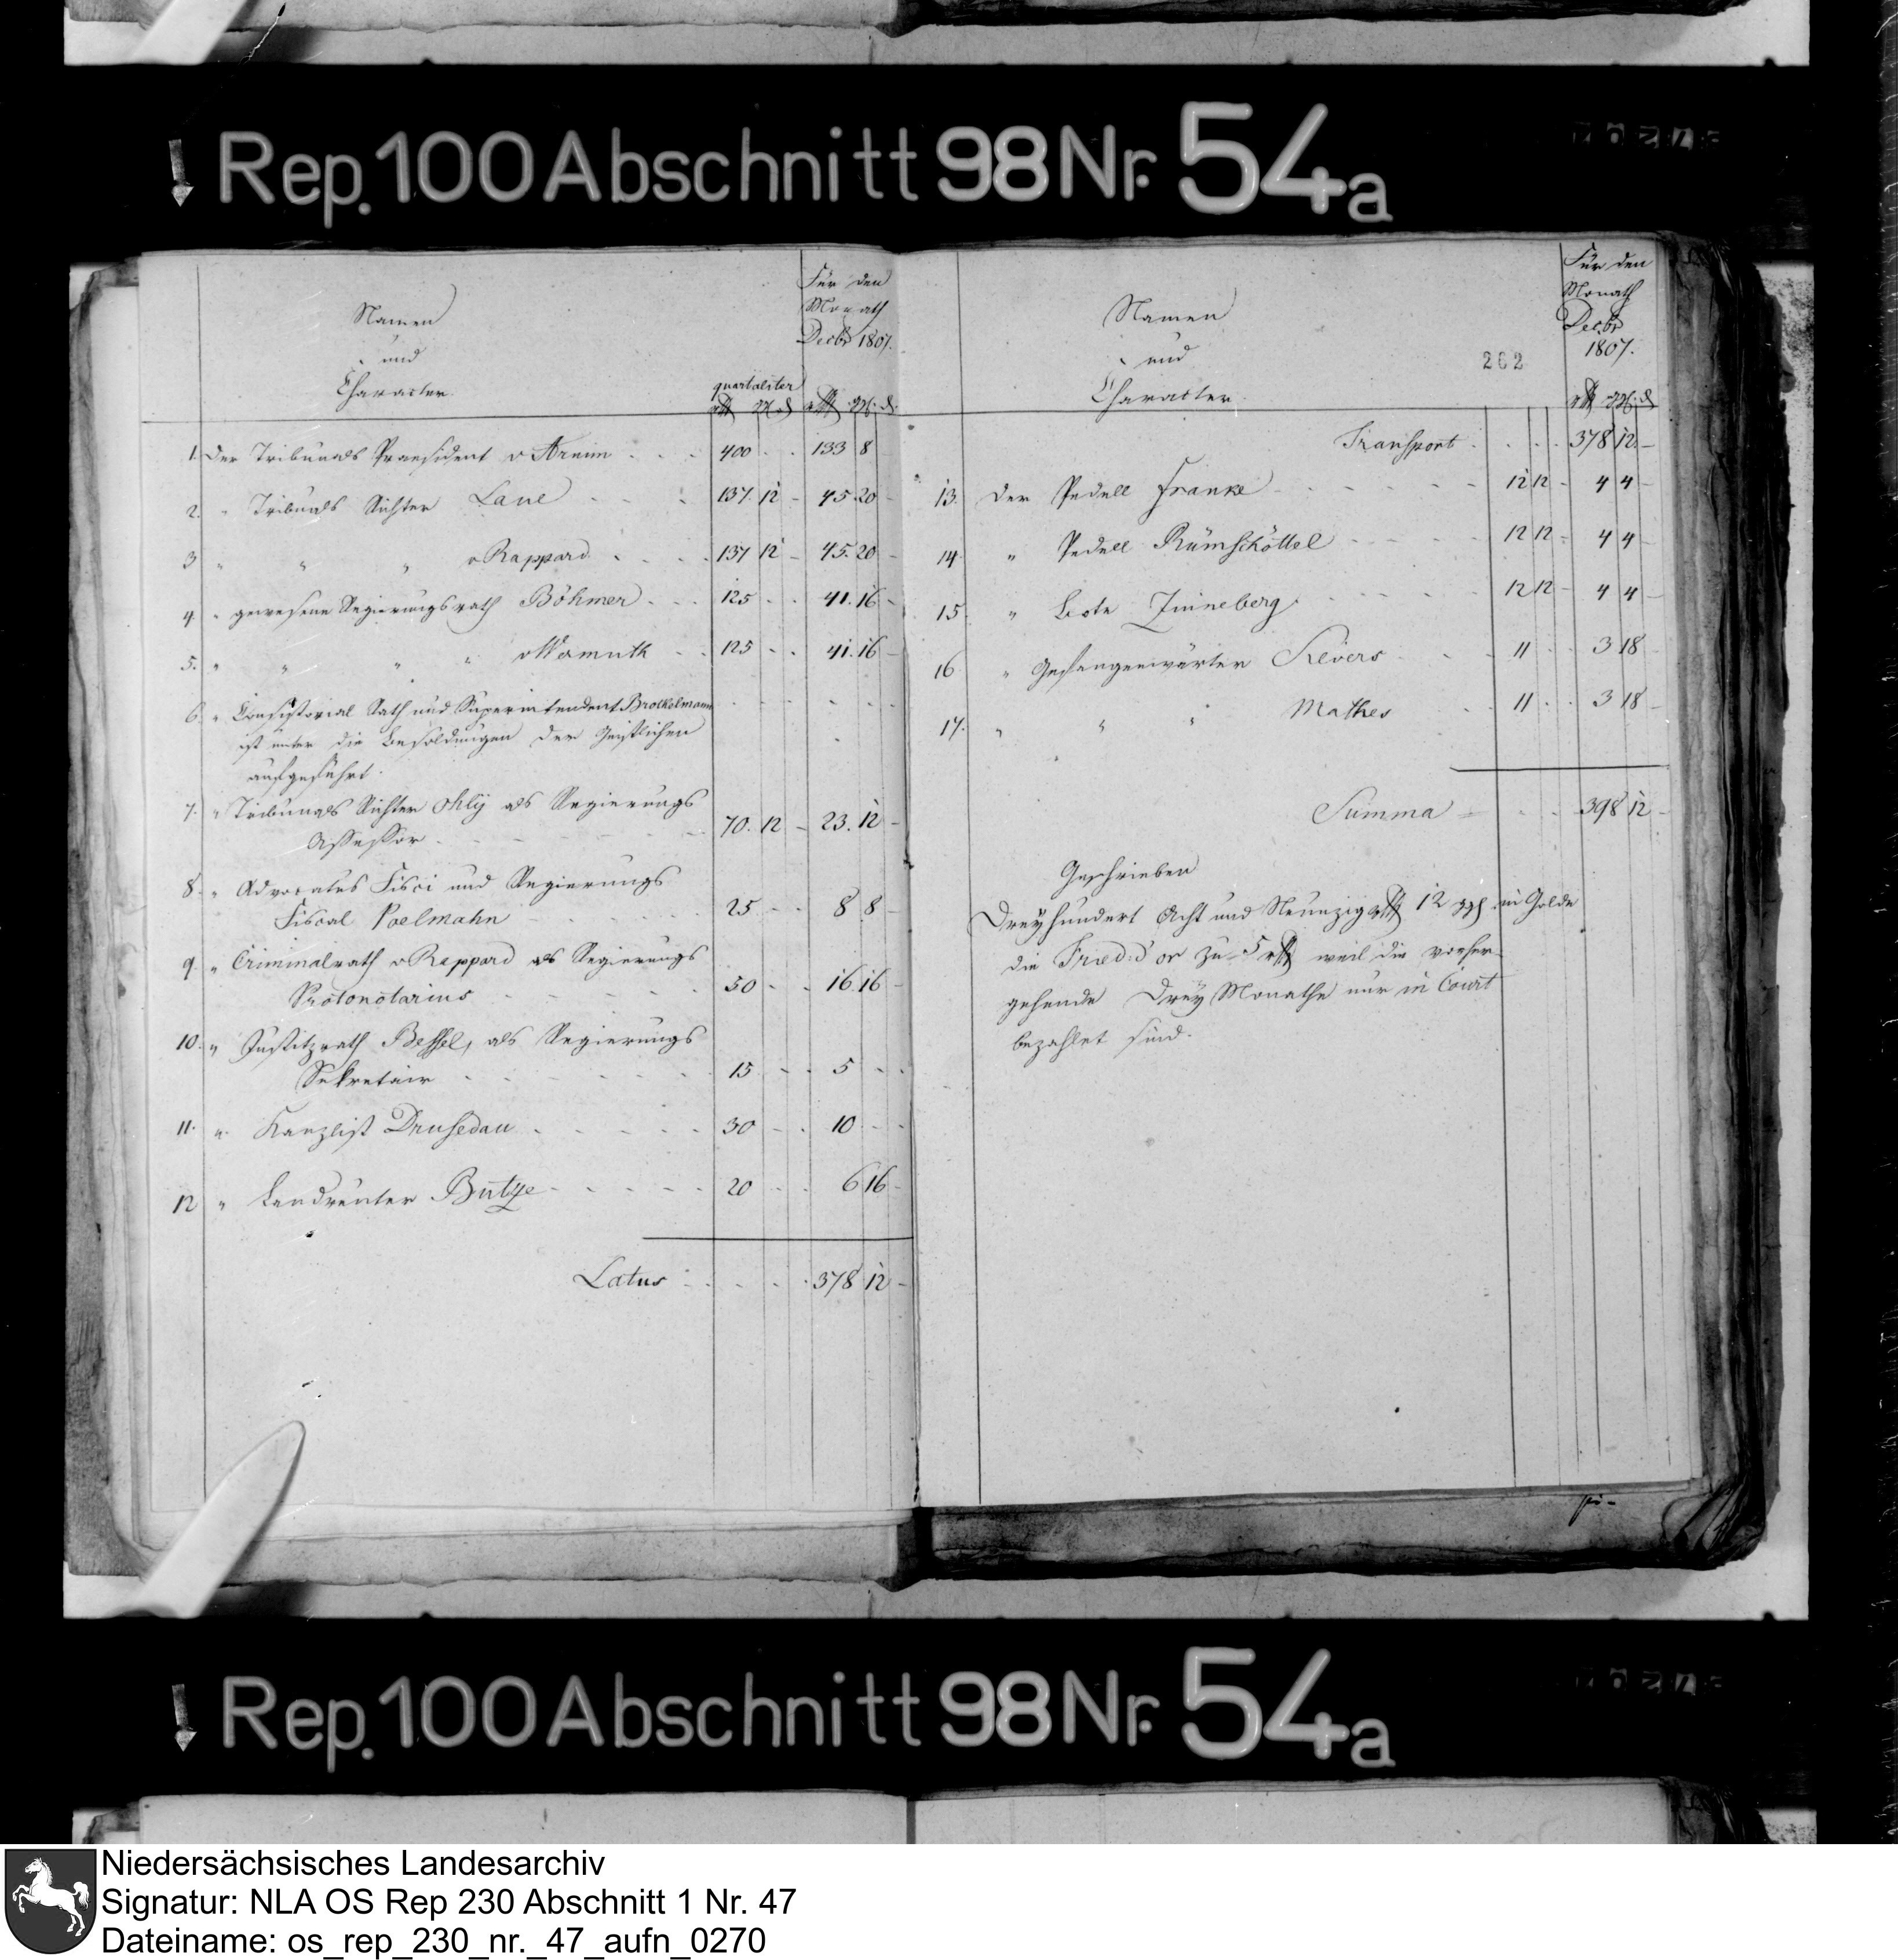 Rep. 100 Abschnitt 98 Nr. 54a
Namen
und
Character.
quartaliter
Für den
Monath
Decbr 1807.
rthl ggl d rthl ggl. d.
1. Der Tribunals Praesident v Arnim . . . 400 . . 133 8
2. " Tribunals Richter Laue - - - 137. 12 - 45. 20 -
3 " " " v Rappard . . . . 137 12 - 45. 20 -
4. " gewesene Regierungsrath Böhmer . . . 125 . . 41. 16 -
5. " " " " v Warmuth - . . 125 - . 41. 16 -
6. " Consistorial Rath und Superintendent Brockelmann
ist unter die Besoldungen der Geistlichen
aufgeführt.
7. " Tribunals Richter Ohly als Regierungs
Assessor - - - 70. 12 - 23. 12 -
8. " Advocatus Fisci und Regierungs
Fiscal Poelmahn - - - 25 - - 8 8 -
9. " Criminalrath v Rappard als Regierungs
Protonotarius - - - 50 - . 16 16 -
10. " Justitzrath Bessel, als Regierungs
Sekretair - - - 15 - - 5 - .
11. " Kanzlist Drusedau . - - - 30 - . 10 - .
12 " Landreuter Butze - - - - 20 . . 6 16 -
Latus - - . . . 378 12 -
262
Namen
und
Character.
Für den
Monath
Decbr
1807.
rthl ggl. d
Transport . . . . 378 12. -
13. Der Pedell Franke - - - - 12 12 - 4 4 -
14. " Pedell Rümschöttel - - - - 12 12 - 4 4 -
15. " Bote Zinneberg . - - - 12 12 - 4 4 -
16. " Gefangenwärter Sievers - - - 11 . . 3 18 -
17. " " " Mathes . . 11 . . 3 18 -
Summa = - . . 398 12 -
Geschrieben
Dreyhundert Acht und Neunzig rthl 12 ggl. in Golde
die Fried. d'or zu 5 rthl weil die vorher
gehende Drey Monathe nur in Court
bezahlet sind.
Rep. 100 Abschnitt 98 Nr. 54a
Niedersächsisches Landesarchiv
Signatur: NLA OS Rep 230 Abschnitt 1 Nr. 47
Dateiname: os_rep_230_nr._47_aufn_0270